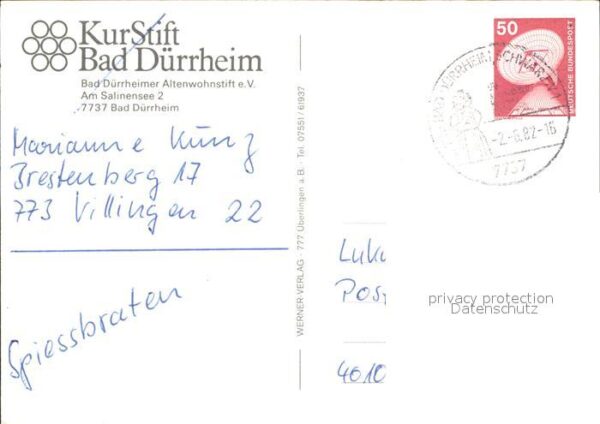 KurStift
Bad Dürrheim
Bad Dürrheimer Altenwohnstift e.V.
Am Salinensee 2
7737 Bad Dürrheim
Marianne Kunz
Brestenberg 17
773 Villingen 22
Spiessbraten
WERNER-VERLAG · 777 Überlingen a.B. · Tel. 07551/61937
50
DEUTSCHE BUNDESPOST
BAD DÜRRHEIM
-2.-6.82-16
7737
Luk
Pos
4010
privacy protection
Datenschutz